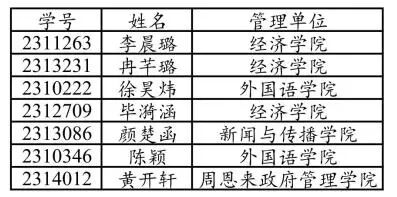 学号 姓名 管理单位
2311263 李晨璐 经济学院
2313231 冉芊璐 经济学院
2310222 徐昊炜 外国语学院
2312709 毕漪涵 经济学院
2313086 颜楚函 新闻与传播学院
2310346 陈颖 外国语学院
2314012 黄开轩 周恩来政府管理学院